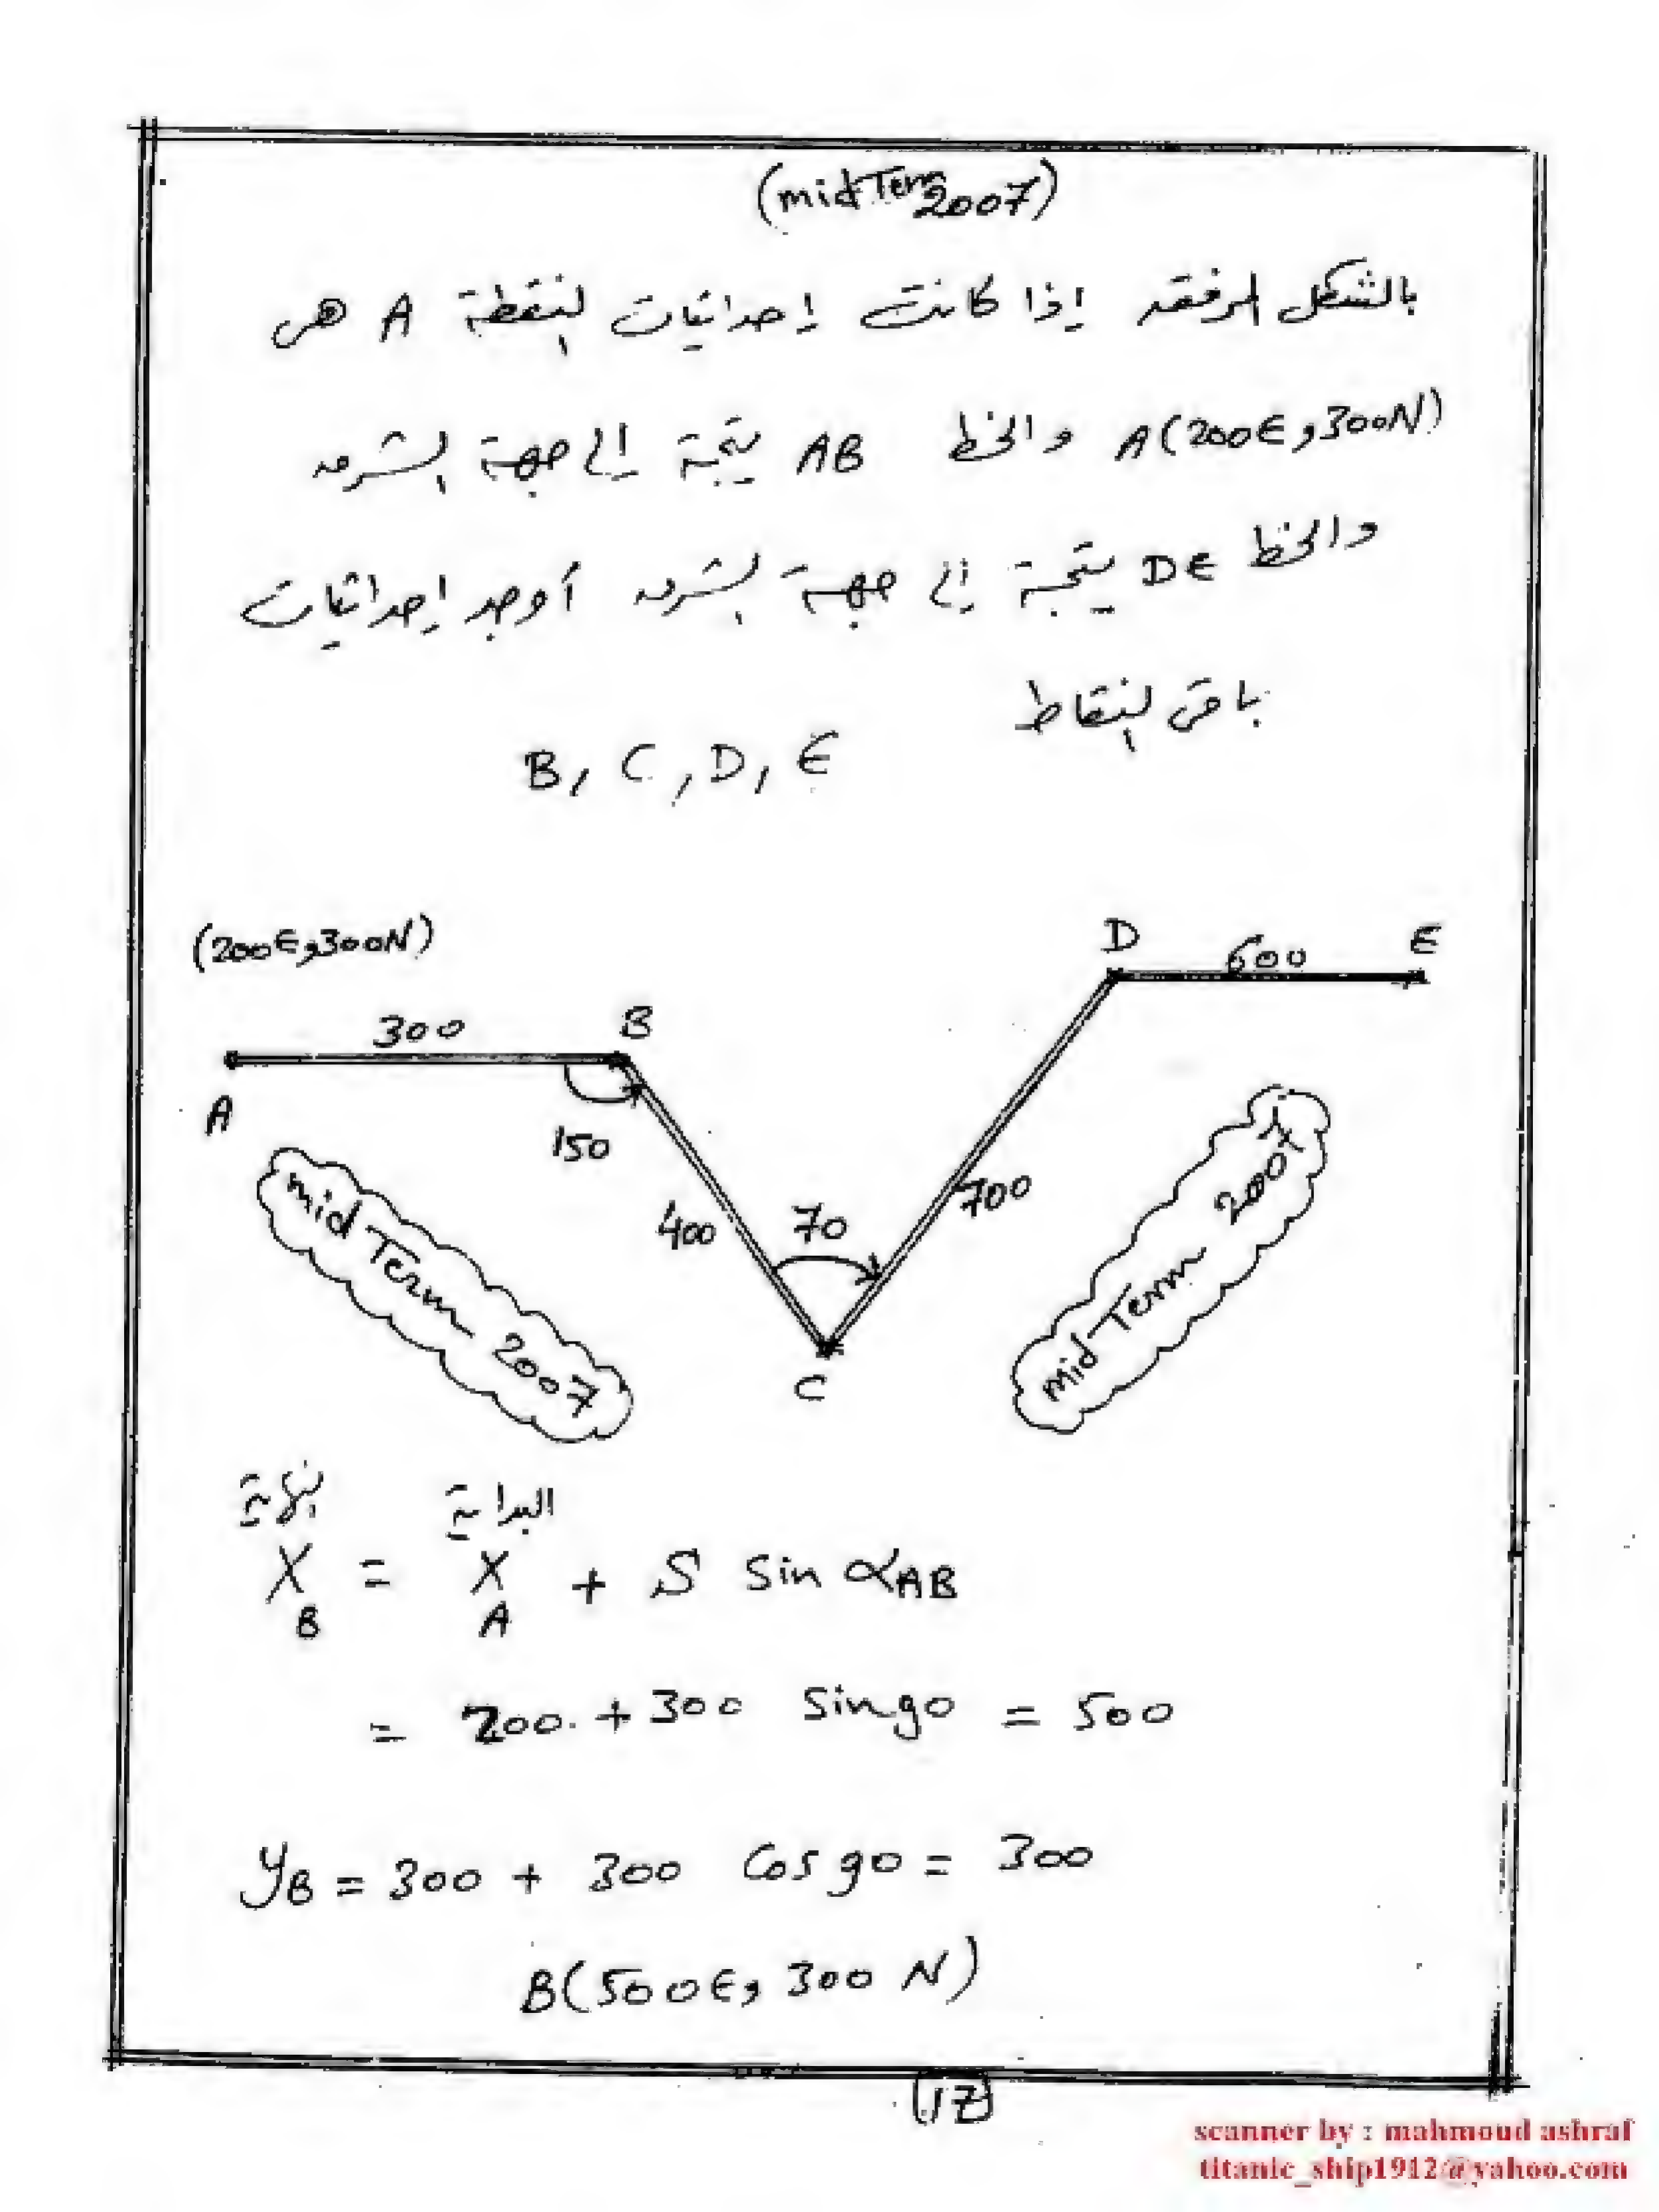 (mid Term 2007)
بالشكل المرفق إذا كانت إحداثيات النقطة A هى
A(200E,300N) والخط AB يتجة إلى جهة الشرق
والخط DE يتجة إلى جهة الشرق أوجد إحداثيات
باقى النقاط
B, C, D, E
(200E,300N)
D 600 E
300 B
A
150
400 70 700
C
mid Term 2007
mid-Term 2007
نهاية البداية
X_B = X_A + S Sin α_AB
= 200. + 300 Sin 90 = 500
y_B = 300 + 300 Cos 90 = 300
B(500E, 300 N)
17
scanner by : mahmoud ashraf
titanic_ship1912@yahoo.com